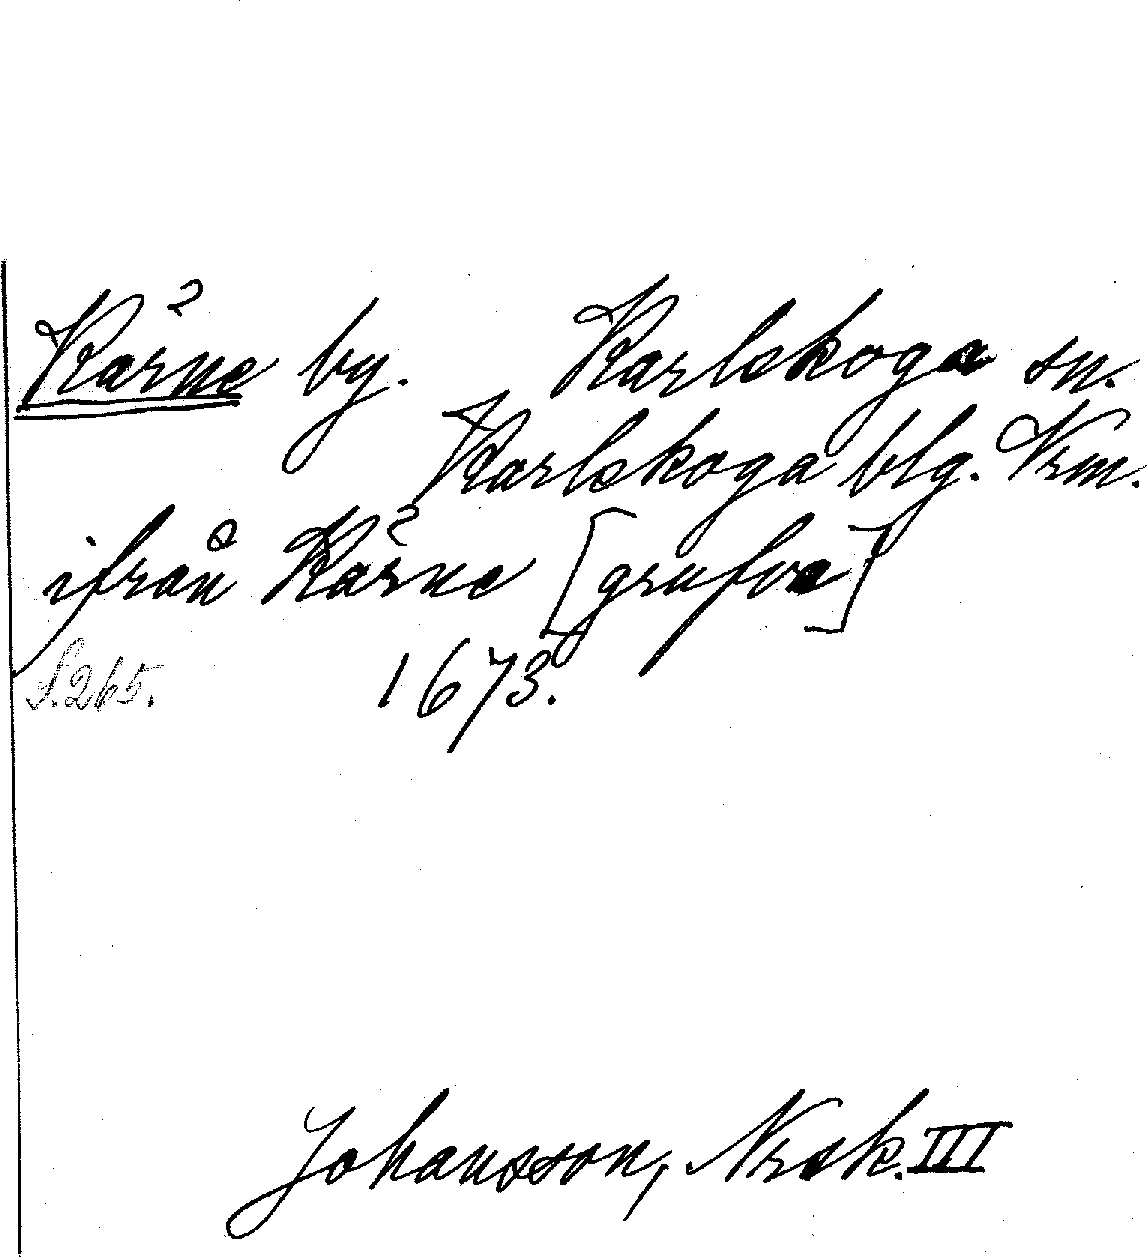 Kärne by. Karlskoga sn.
Karlskoga blg. Vrm.
ifrån Kärne [grufva]
S. 265. 1673.
Johansson, Nrsk. III